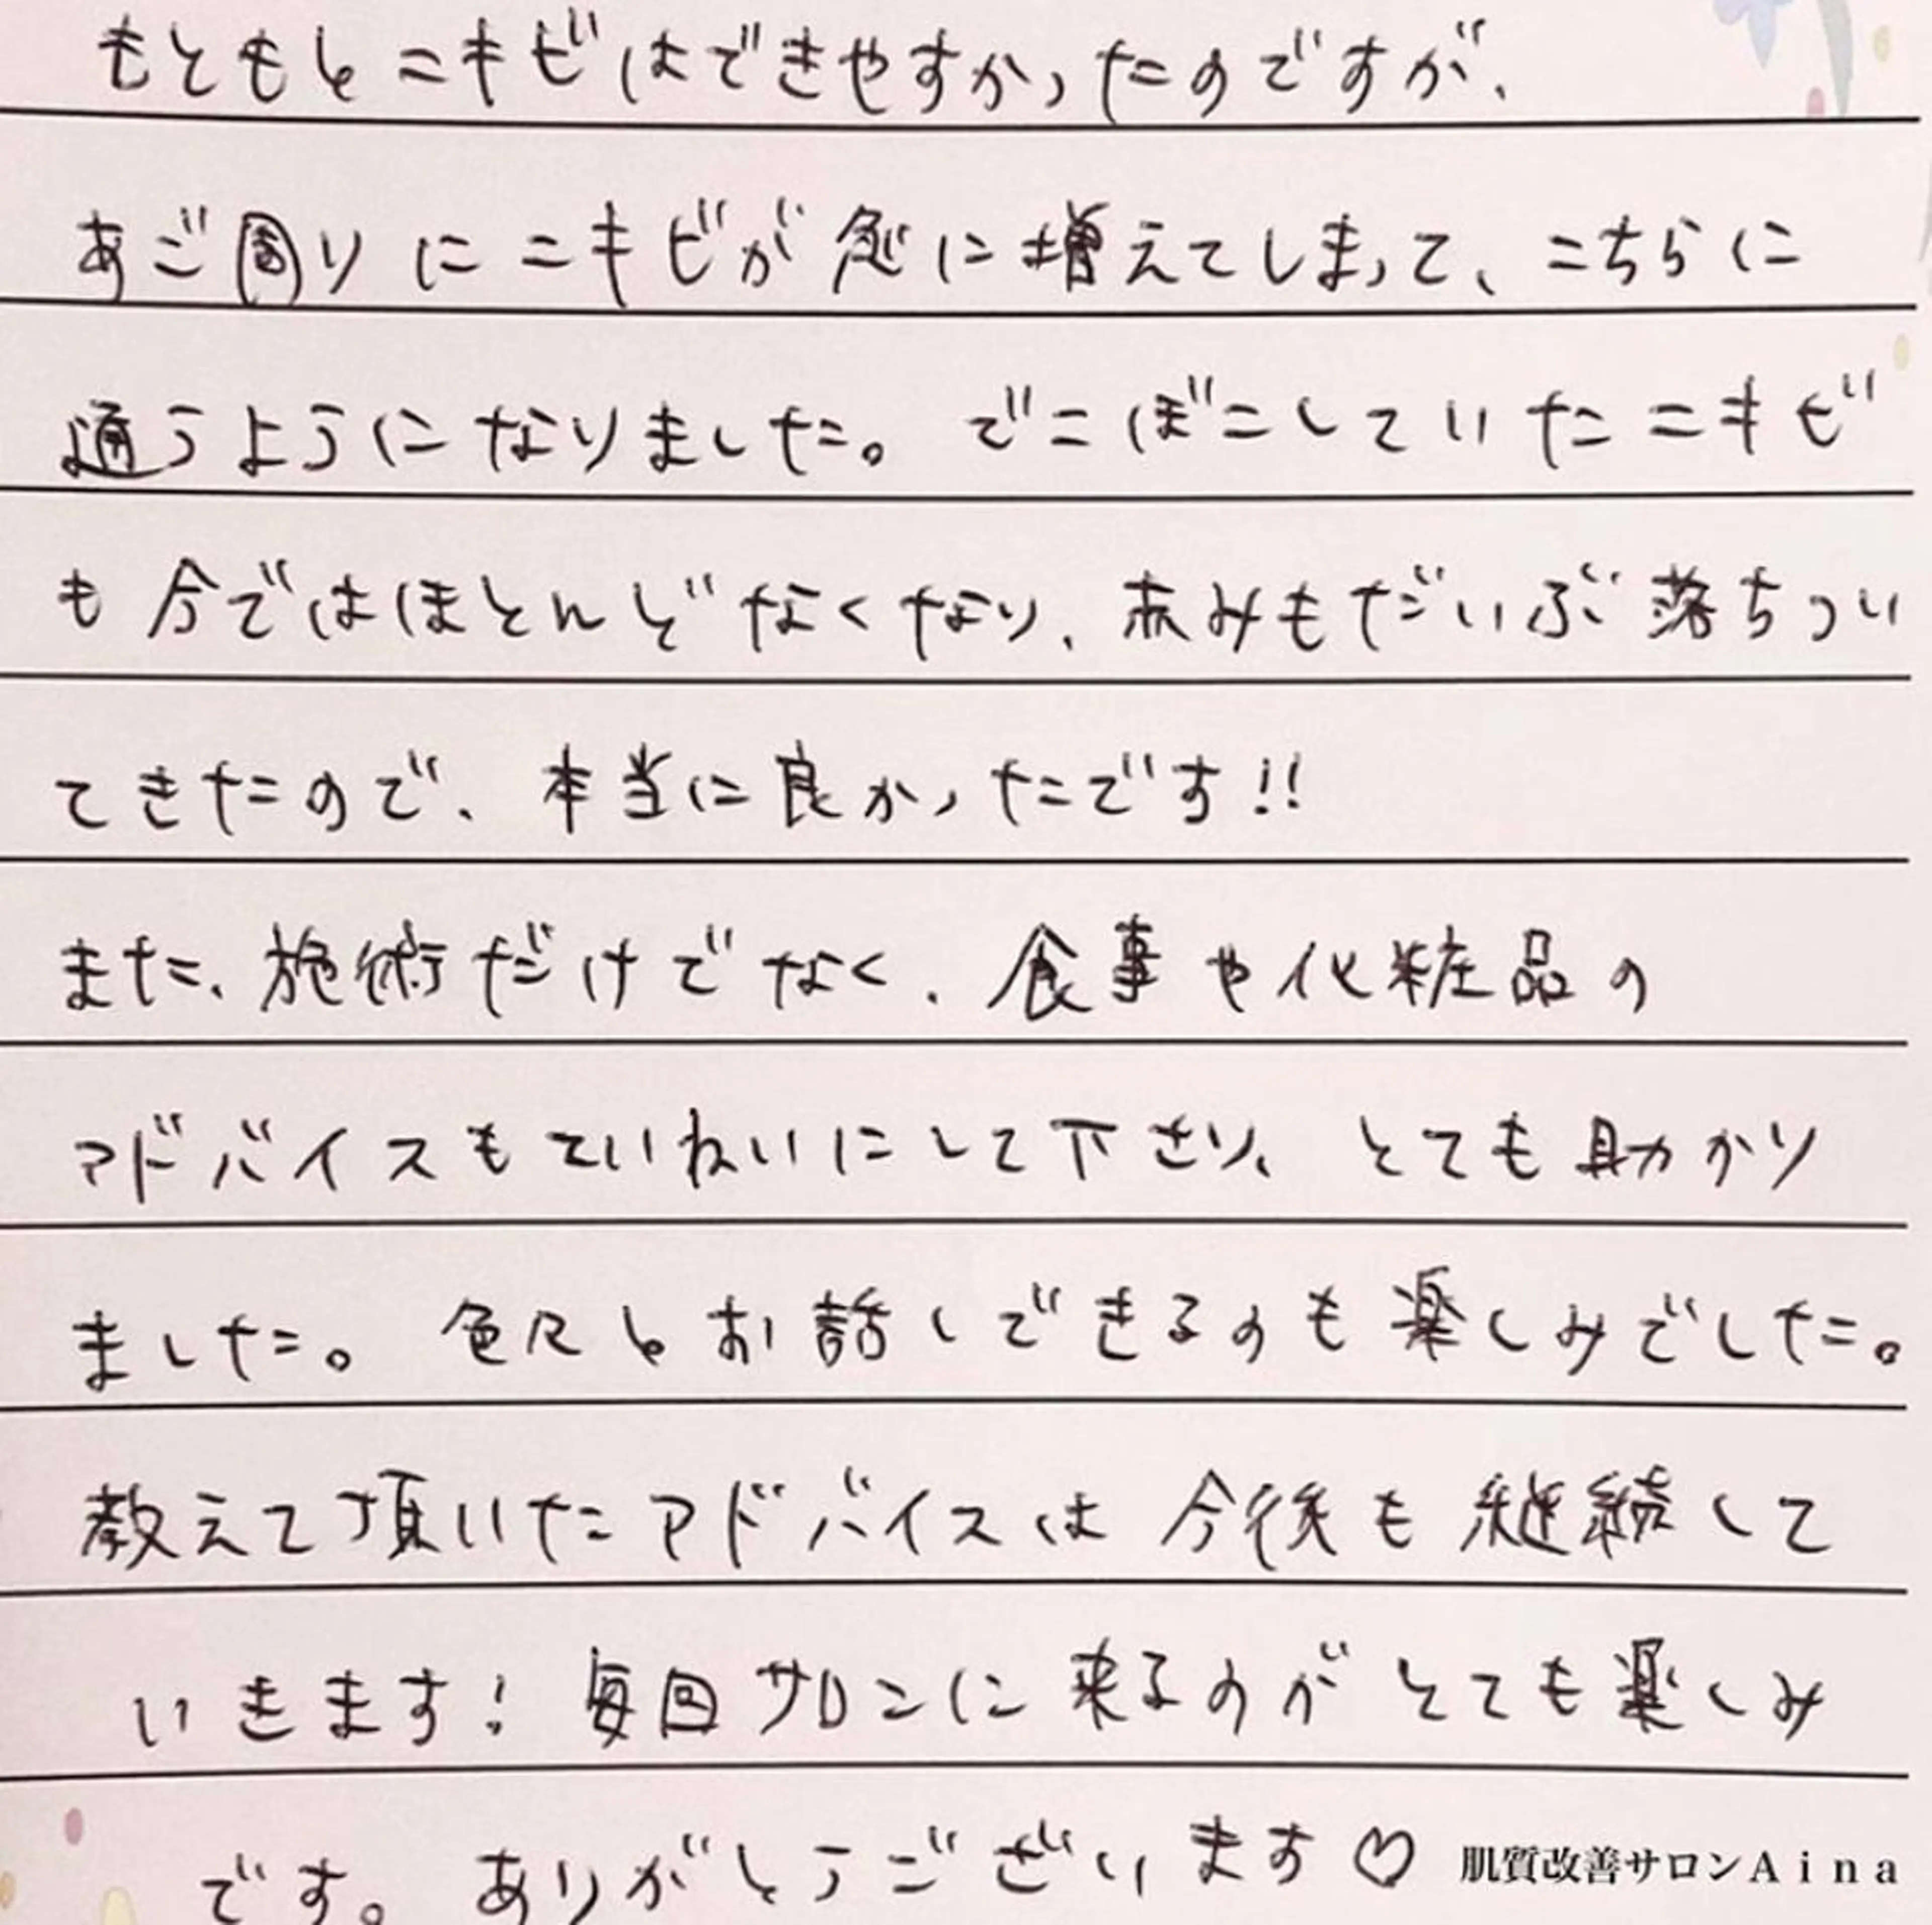 もともとニキビはできやすかったのですが、
あご周りにニキビが急に増えてしまって、こちらに
通うようになりました。でこぼこしていたニキビ
も今ではほとんどなくなり、赤みもだいぶ落ちつい
てきたので、本当に良かったです!!
また、施術だけでなく、食事や化粧品の
アドバイスもていねいにして下さり、とても助かり
ました。色々とお話しできるのも楽しみでした。
教えて頂いたアドバイスは今後も継続して
いきます！毎回サロンに来るのがとても楽しみ
です。ありがとうございます♡
肌質改善サロンAina